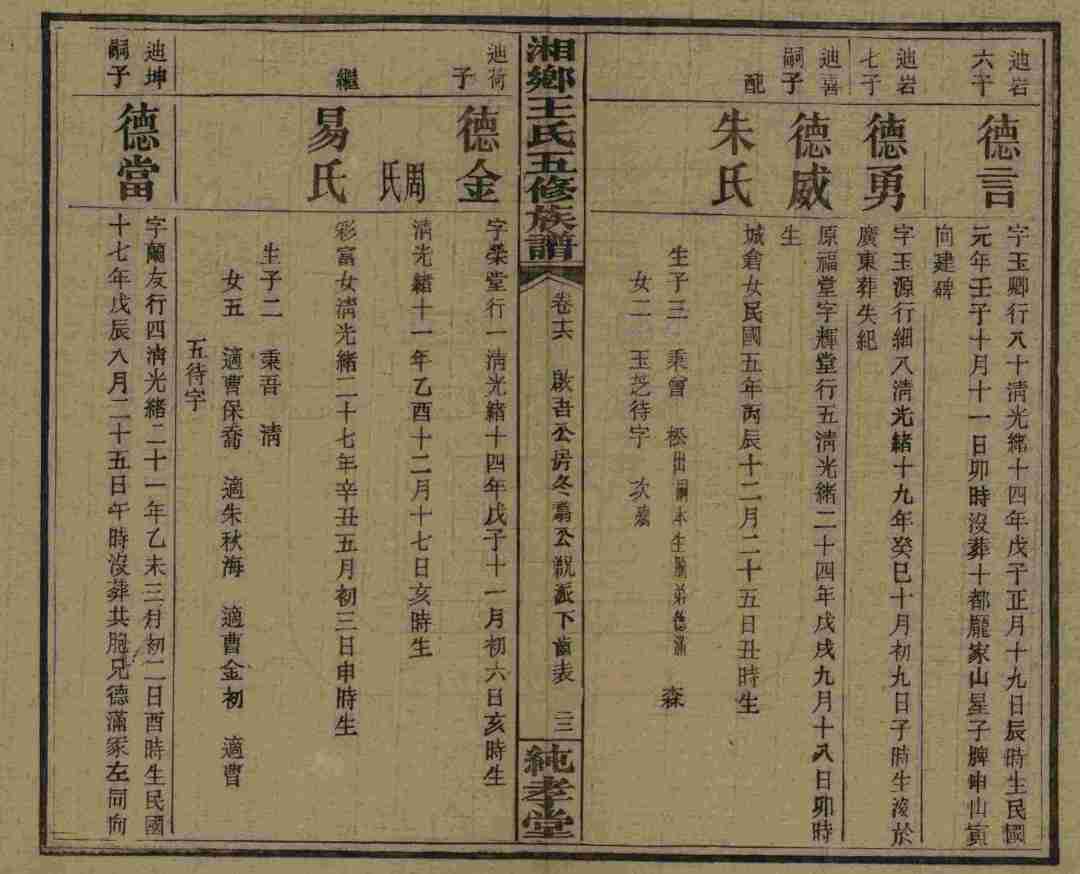 迪岩
六子
德言
字玉卿行八十淸光緒十四年戊子正月十九日辰時生民國
元年壬子十月十一日卯時沒葬十都龐家山星子牌申山寅
向建碑
迪岩
七子
德勇
字玉源行細八淸光緒十九年癸巳十月初九日子時生沒於
廣東葬失紀
迪喜
嗣子
德威
原福堂字輝堂行五淸光緒二十四年戊戌九月十八日卯時
生
配
朱氏
城倉女民國五年丙辰十二月二十五日丑時生
生子三 秉會 松出嗣本生胞弟德滿 森
女二 玉芝待字 次
湘鄉王氏五修族譜
卷十六 啟吉公房冬翦公派下齒表 三
純孝堂
迪荷
子
德金
字榮堂行一淸光緒十四年戊子十一月初六日亥時生
周氏
淸光緒十一年乙酉十二月十七日亥時生
繼
易氏
彩富女淸光緒二十七年辛丑五月初三日申時生
生子二 秉吾 淸
女五 適曹保喬 適朱秋海 適曹金初 適曹
五待字
迪坤
嗣子
德當
字蘭友行四淸光緒二十一年乙未三月初二日酉時生民國
十七年戊辰八月二十五日午時沒葬共胞兄德滿冢左同向